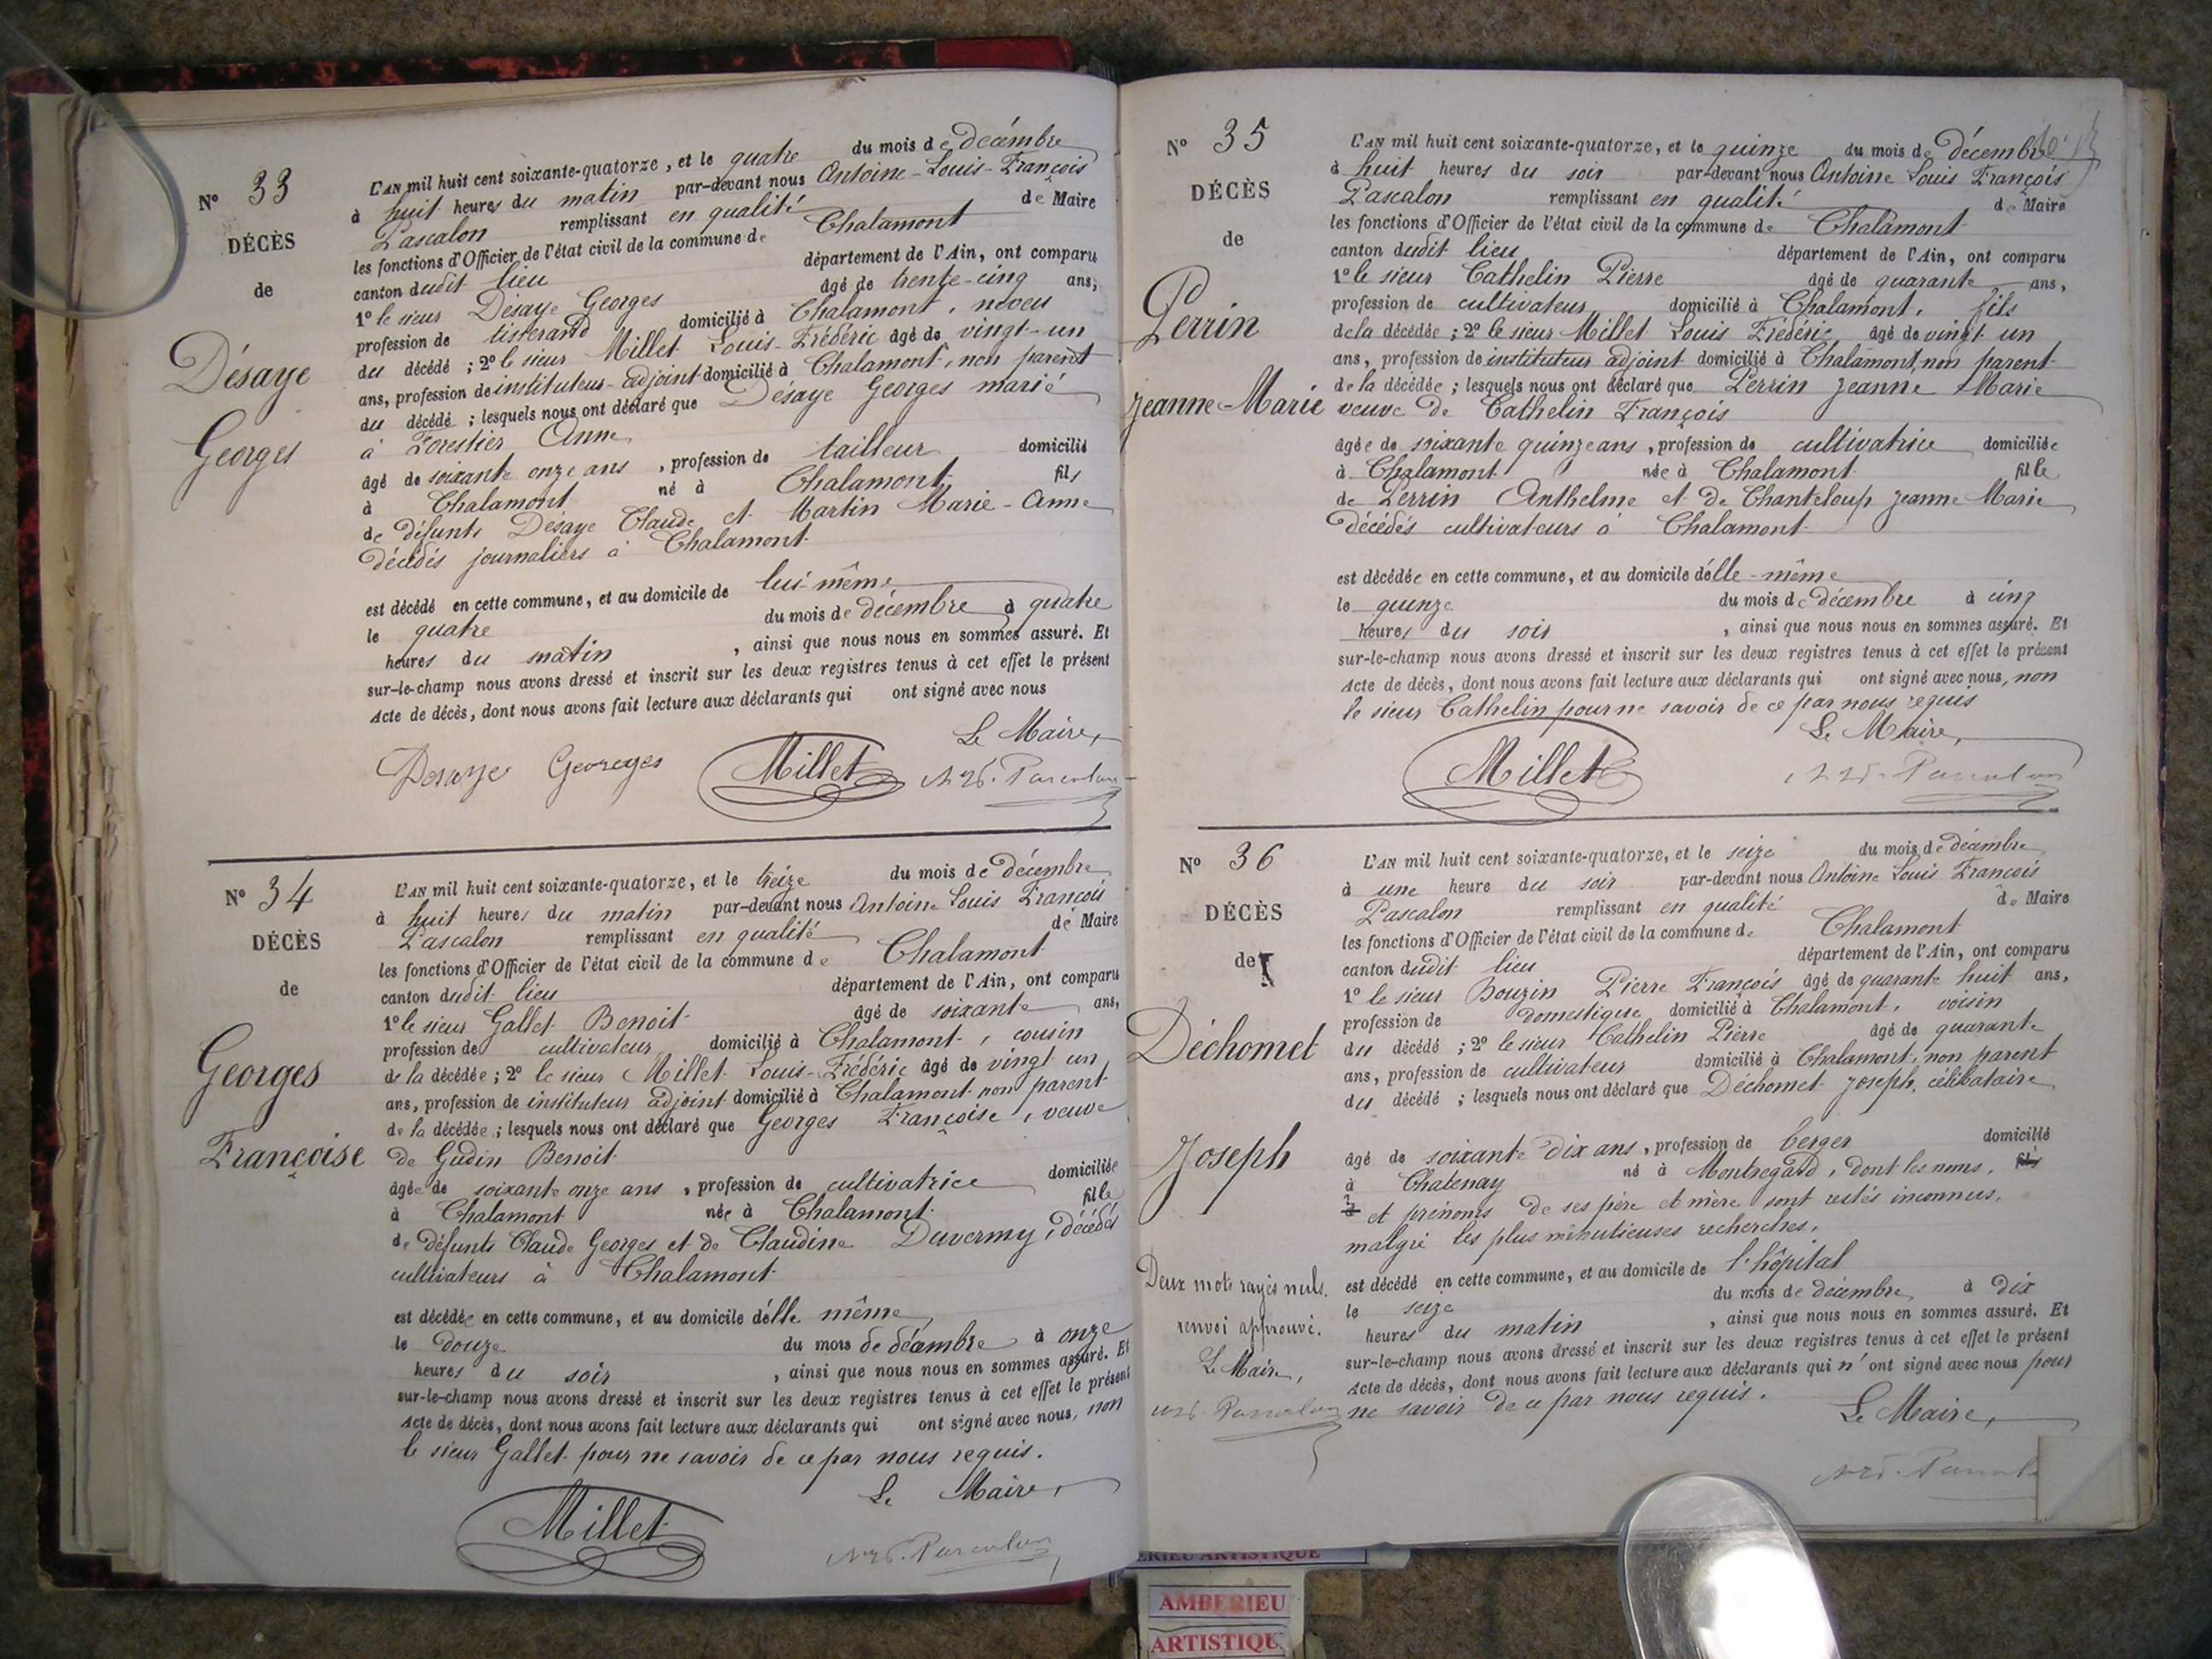 N° 33
DÉCÈS
de
Désaye
Georges
L'AN mil huit cent soixante-quatorze, et le quatre du mois de décembre
à huit heures du matin par-devant nous Antoine-Louis-François
Pascalon remplissant en qualité de Maire
les fonctions d'Officier de l'état civil de la commune de Chalamont
canton dudit lieu département de l'Ain, ont comparu
1° le sieur Désaye Georges âgé de trente-cinq ans,
profession de tisserand domicilié à Chalamont, neveu
du décédé ; 2° le sieur Millet Louis-Frédéric âgé de vingt-un
ans, profession de instituteur-adjoint domicilié à Chalamont, non parent
du décédé ; lesquels nous ont déclaré que Désaye Georges marié
à Forestier Anne
âgé de soixante onze ans, profession de tailleur domicilié
à Chalamont né à Chalamont fils
de défunts Désaye Claude et Martin Marie-Anne
décédés journaliers à Chalamont
est décédé en cette commune, et au domicile de lui-même
le quatre du mois de décembre à quatre
heures du matin, ainsi que nous nous en sommes assuré. Et
sur-le-champ nous avons dressé et inscrit sur les deux registres tenus à cet effet le présent
Acte de décès, dont nous avons fait lecture aux déclarants qui ont signé avec nous
Le Maire,
Desaye Georeges Millet Pascalon
N° 34
DÉCÈS
de
Georges
Françoise
L'AN mil huit cent soixante-quatorze, et le treize du mois de décembre
à huit heures du matin par-devant nous Antoine Louis François
Pascalon remplissant en qualité de Maire
les fonctions d'Officier de l'état civil de la commune de Chalamont
canton dudit lieu département de l'Ain, ont comparu
1° le sieur Gallet Benoit âgé de soixante ans,
profession de cultivateur domicilié à Chalamont, cousin
de la décédée ; 2° le sieur Millet Louis-Frédéric âgé de vingt un
ans, profession de instituteur adjoint domicilié à Chalamont non parent
de la décédée ; lesquels nous ont déclaré que Georges Françoise, veuve
de Gudin Benoit
âgée de soixante onze ans, profession de cultivatrice domiciliée
à Chalamont née à Chalamont fille
de défunts Claude Georges et de Claudine Duvermy, décédés
cultivateurs à Chalamont
est décédée en cette commune, et au domicile d'elle même
le douze du mois de décembre à onze
heures du soir, ainsi que nous nous en sommes assuré. Et
sur-le-champ nous avons dressé et inscrit sur les deux registres tenus à cet effet le présent
Acte de décès, dont nous avons fait lecture aux déclarants qui ont signé avec nous, non
le sieur Gallet pour ne savoir de ce par nous requis.
Le Maire,
Millet Pascalon
N° 35
DÉCÈS
de
Perrin
Jeanne-Marie
L'AN mil huit cent soixante-quatorze, et le quinze du mois de décembre
à huit heures du soir par-devant nous Antoine Louis François
Pascalon remplissant en qualité de Maire
les fonctions d'Officier de l'état civil de la commune de Chalamont
canton dudit lieu département de l'Ain, ont comparu
1° le sieur Cathelin Pierre âgé de quarante ans,
profession de cultivateur domicilié à Chalamont, fils
de la décédée ; 2° le sieur Millet Louis Frédéric âgé de vingt un
ans, profession de instituteur adjoint domicilié à Chalamont, non parent
de la décédée ; lesquels nous ont déclaré que Perrin Jeanne Marie
veuve de Cathelin François
âgée de soixante quinze ans, profession de cultivatrice domiciliée
à Chalamont née à Chalamont fille
de Perrin Anthelme et de Chanteloup Jeanne Marie
décédés cultivateurs à Chalamont
est décédée en cette commune, et au domicile d'elle-même
le quinze du mois de décembre à cinq
heures du soir, ainsi que nous nous en sommes assuré. Et
sur-le-champ nous avons dressé et inscrit sur les deux registres tenus à cet effet le présent
Acte de décès, dont nous avons fait lecture aux déclarants qui ont signé avec nous, non
le sieur Cathelin pour ne savoir de ce par nous requis
Le Maire,
Millet Pascalon
N° 36
DÉCÈS
de
Déchomet
Joseph
Deux mots rayés nuls.
renvoi approuvé.
Le Maire,
Pascalon
L'AN mil huit cent soixante-quatorze, et le seize du mois de décembre
à une heure du soir par-devant nous Antoine Louis François
Pascalon remplissant en qualité de Maire
les fonctions d'Officier de l'état civil de la commune de Chalamont
canton dudit lieu département de l'Ain, ont comparu
1° le sieur Bouzin Pierre François âgé de quarante huit ans,
profession de domestique domicilié à Chalamont, voisin
du décédé ; 2° le sieur Cathelin Pierre âgé de quarante
ans, profession de cultivateur domicilié à Chalamont, non parent
du décédé ; lesquels nous ont déclaré que Déchomet Joseph, célibataire
âgé de soixante dix ans, profession de berger domicilié
à Chatenay né à Montregard, dont les noms, fils
de et prénoms de ses père et mère sont restés inconnus,
malgré les plus minutieuses recherches,
est décédé en cette commune, et au domicile de l'hôpital
le seize du mois de décembre à dix
heures du matin, ainsi que nous nous en sommes assuré. Et
sur-le-champ nous avons dressé et inscrit sur les deux registres tenus à cet effet le présent
Acte de décès, dont nous avons fait lecture aux déclarants qui n'ont signé avec nous pour
ne savoir de ce par nous requis.
Le Maire,
ARTISTIQUE
AMBERIEU
ARTISTIQU